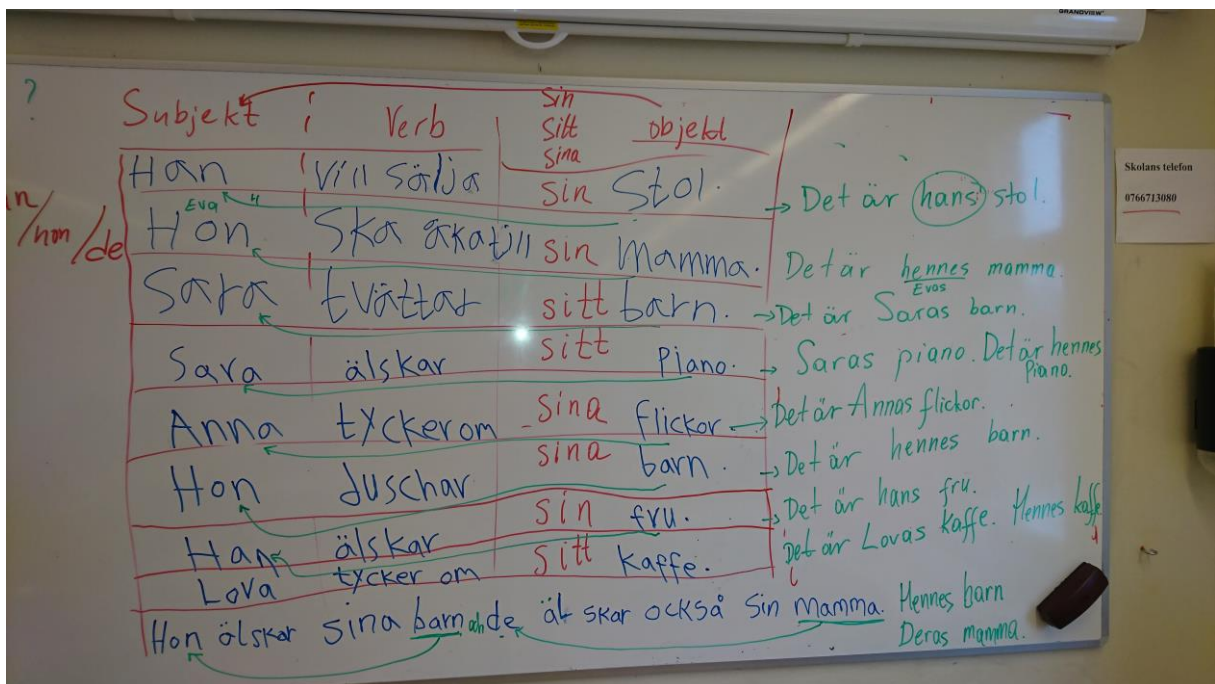 GRANDVIEW
?
Subjekt Verb sin sitt sina objekt
Han vill sälja sin stol. → Det är hans stol.
Skolans telefon
0766713080
/hon/de
Eva
Hon ska åka till sin mamma. Det är hennes mamma.
Evas
Sara tvättar sitt barn. → Det är Saras barn.
Sara älskar sitt piano. → Saras piano. Det är hennes piano.
Anna tycker om sina flickor. → Det är Annas flickor.
Hon duschar sina barn. → Det är hennes barn.
Han älskar sin fru. → Det är hans fru.
Lova tycker om sitt kaffe. Det är Lovas kaffe. Hennes kaffe
Hon älskar sina barn oh de älskar också sin mamma. Hennes barn
Deras mamma.